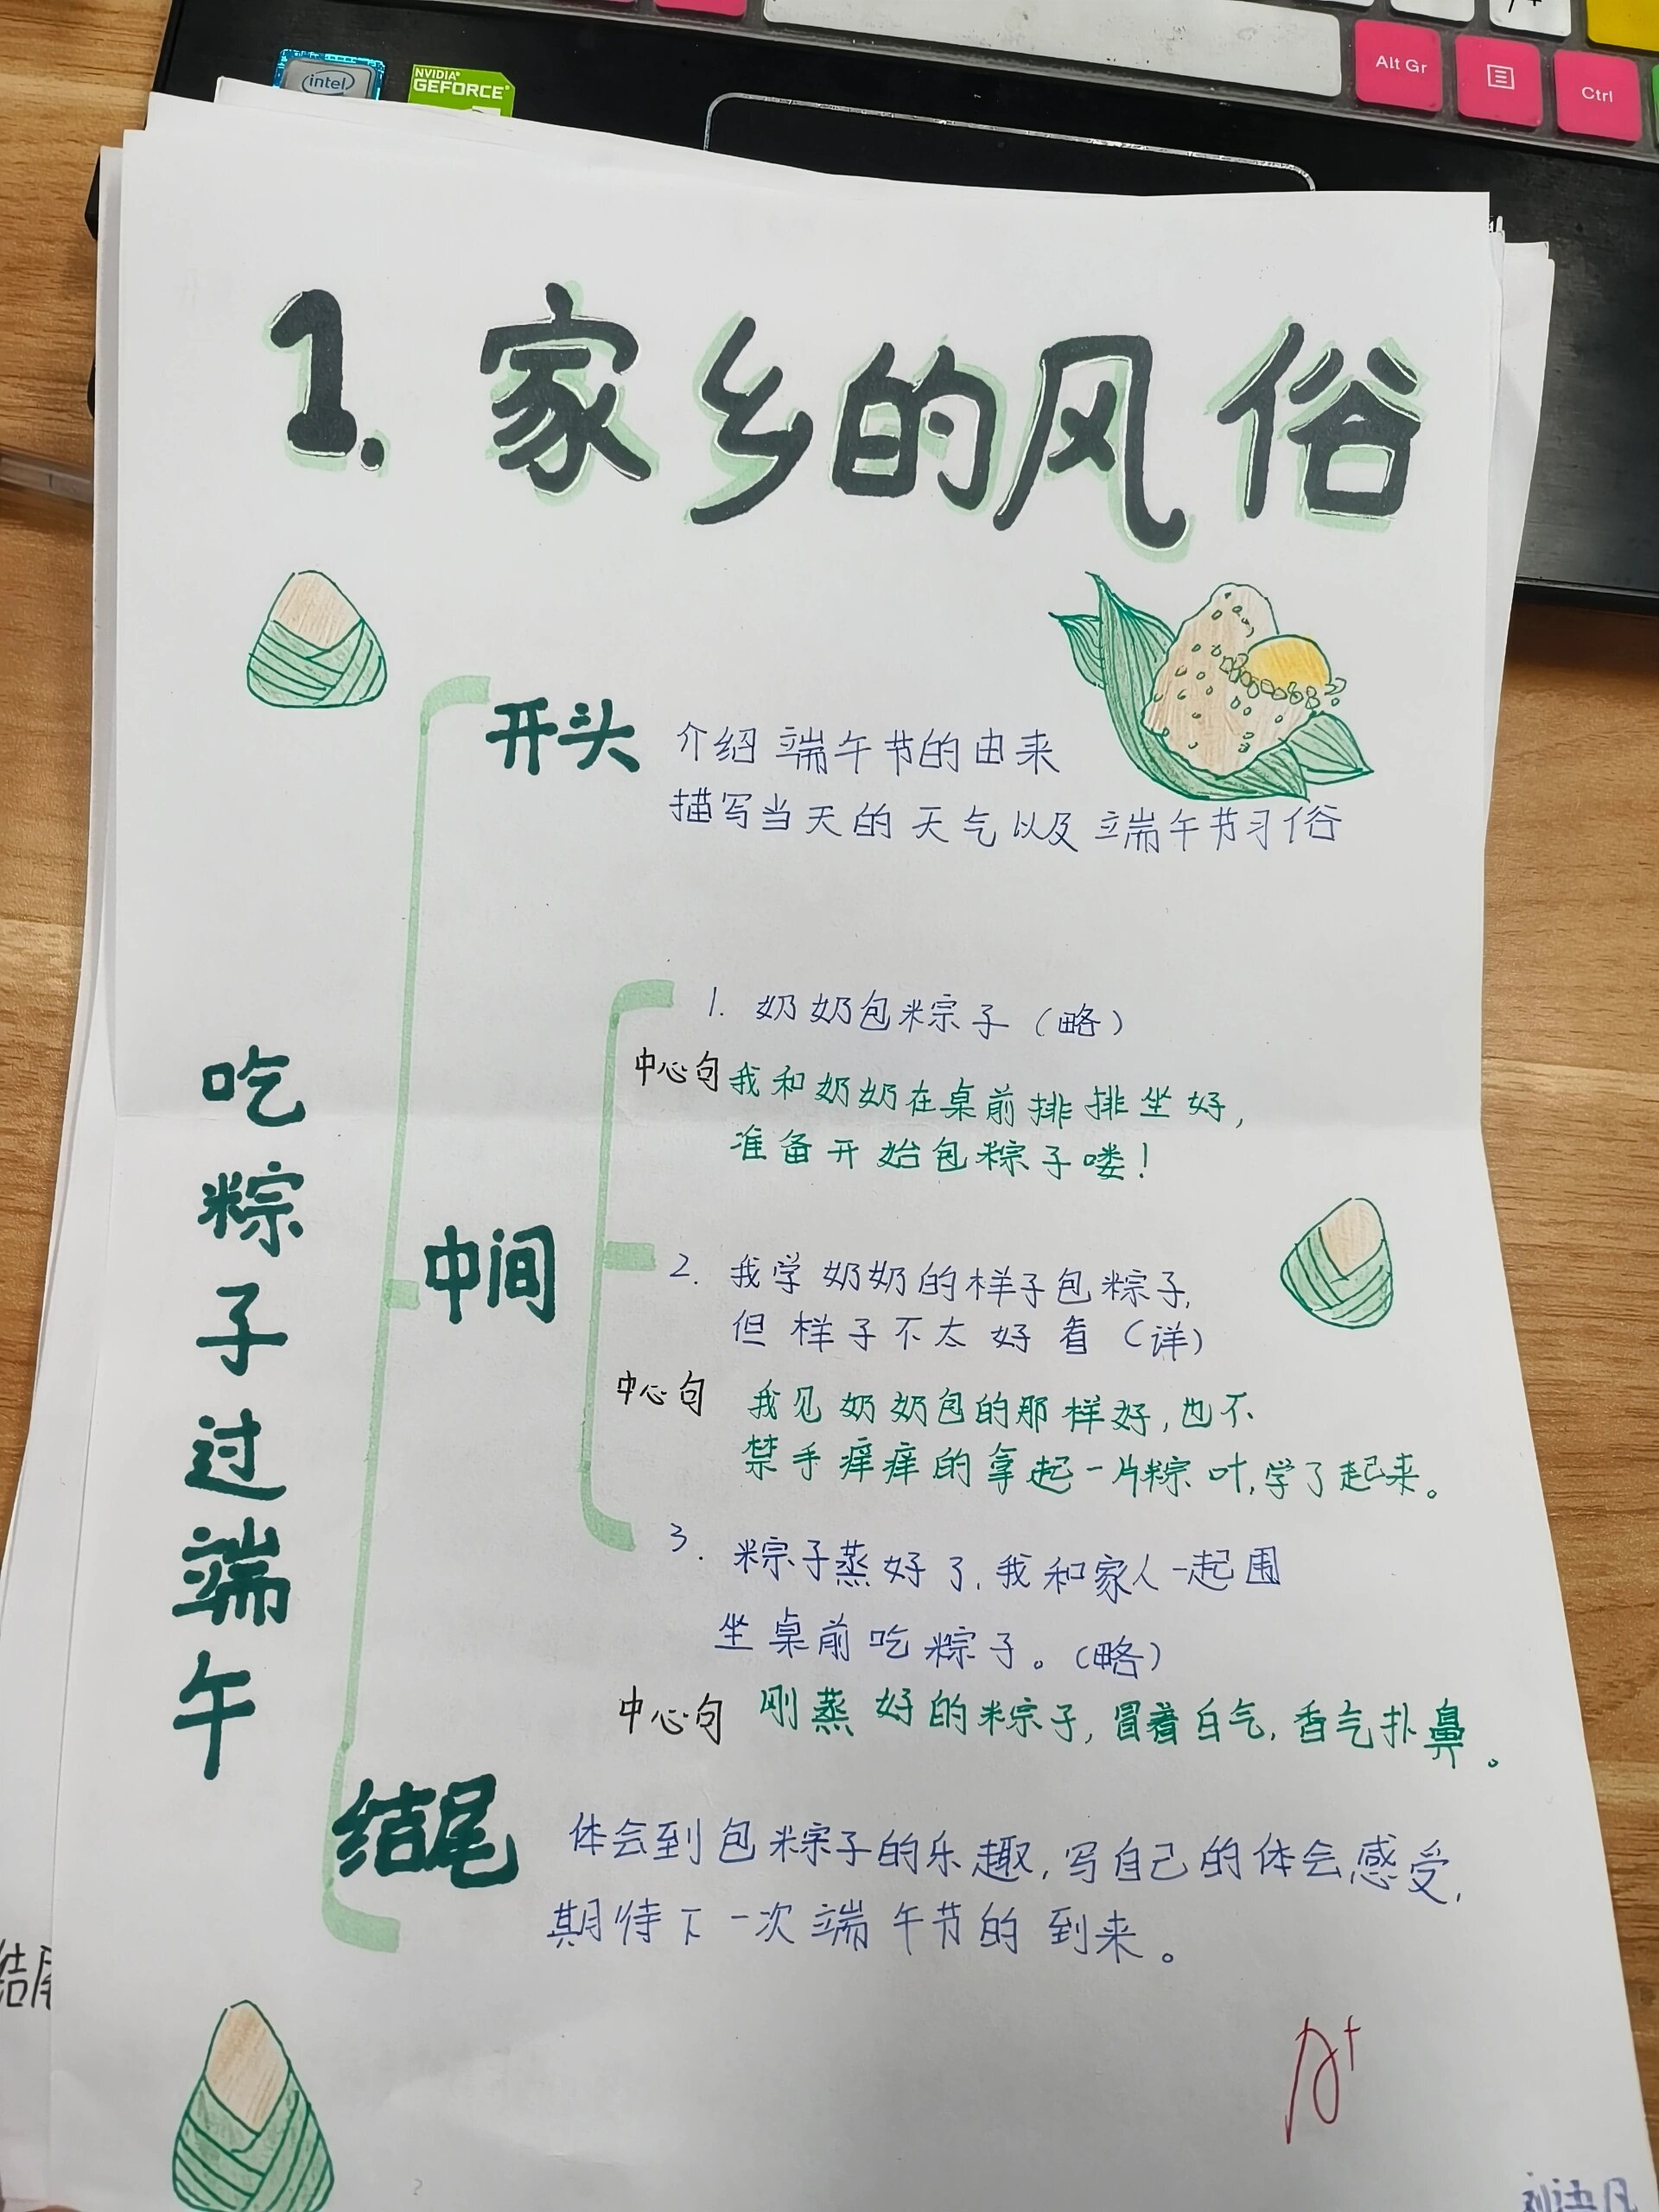 intel
NVIDIA®
GEFORCE®
Alt Gr
Ctrl
1. 家乡的风俗
吃粽子过端午
开头
介绍端午节的由来
描写当天的天气以及端午节习俗
中间
1. 奶奶包粽子（略）
中心句 我和奶奶在桌前排排坐好，
准备开始包粽子喽！
2. 我学奶奶的样子包粽子，
但样子不太好看（详）
中心句 我见奶奶包的那样好，也不
禁手痒痒的拿起一片粽叶，学了起来。
3. 粽子蒸好了，我和家人一起围
坐桌前吃粽子。（略）
中心句 刚蒸好的粽子，冒着白气，香气扑鼻。
结尾
体会到包粽子的乐趣，写自己的体会感受，
期待下一次端午节的到来。
A+